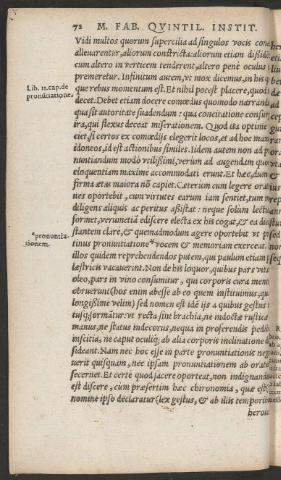 72 M. FAB. QVINTIL. INSTIT.
Vidi multos quorum supercilia ad singulos vocis cona
alleuarentur, aliorum constricta: aliorum etiam disside
cum altero in verticem tenderent, altero penè oculus i
premeretur. Infinitum autem, vt mox dicemus, in his q
Lib. 11. cap. de
pronūciatione.
que rebus momentum est. Et nihil potest placere, quod
decet. Debet etiam docere comœdus quomodo narrand
qua sit autoritate suadendum: qua concitatione consur
ira, qui flexus deceat miserationem. Quod ita optimè
ciet, si certos ex comœdijs elegerit locos, et ad hoc maxi
idoneos, id est actionibus similes. Iidem autem non ad pro
nuntiandum modò vtilissimi, verùm ad augendam quo
eloquentiam maximè accommodati erunt. Et hæc, dum
firma ætas maiora nō capiet. Cæterùm cum legere ora
nes oportebit, cum virtutes earum iam sentiet, tum
diligens aliquis ac peritus assistat: neque solùm lecti
formet, verumetiã ediscere electa ex his cogat, & ea di
stantem clarè, & quemadmodum agere oportebit vt p
*pronuntia-
tionem.
tinus pronuntiatione* vocem & memoriam exerceat.
illos quidem reprehendendos putem, qui paulum etiam
læstricis vacauerint. Non de his loquor, quibus pars vitæ
oleo, pars in vino consumitur, qui corporis cura mem
obruerunt (hos enim abesse ab eo quem instituimus, quàm
longissimè velim) sed nomen est idē ijs a quibus gestus
tusq́; formãtur: vt recta sint brachia, ne indoctæ rusticæ
manus, ne status indecorus, nequa in proferendis pedib
inscitia, ne caput oculiq́; ab alia corporis inclinatione
sideant. Nam nec hoc esse in parte pronuntiationis neg
uerit quisquam, nec ipsam pronuntiationem ab orat
secernet. Et certè quod facere oporteat, non indignand
est discere, cùm præsertim hæc chironomia, quæ est
nomine ipso declaratur) lex gestus, & ab illis temporib
herou